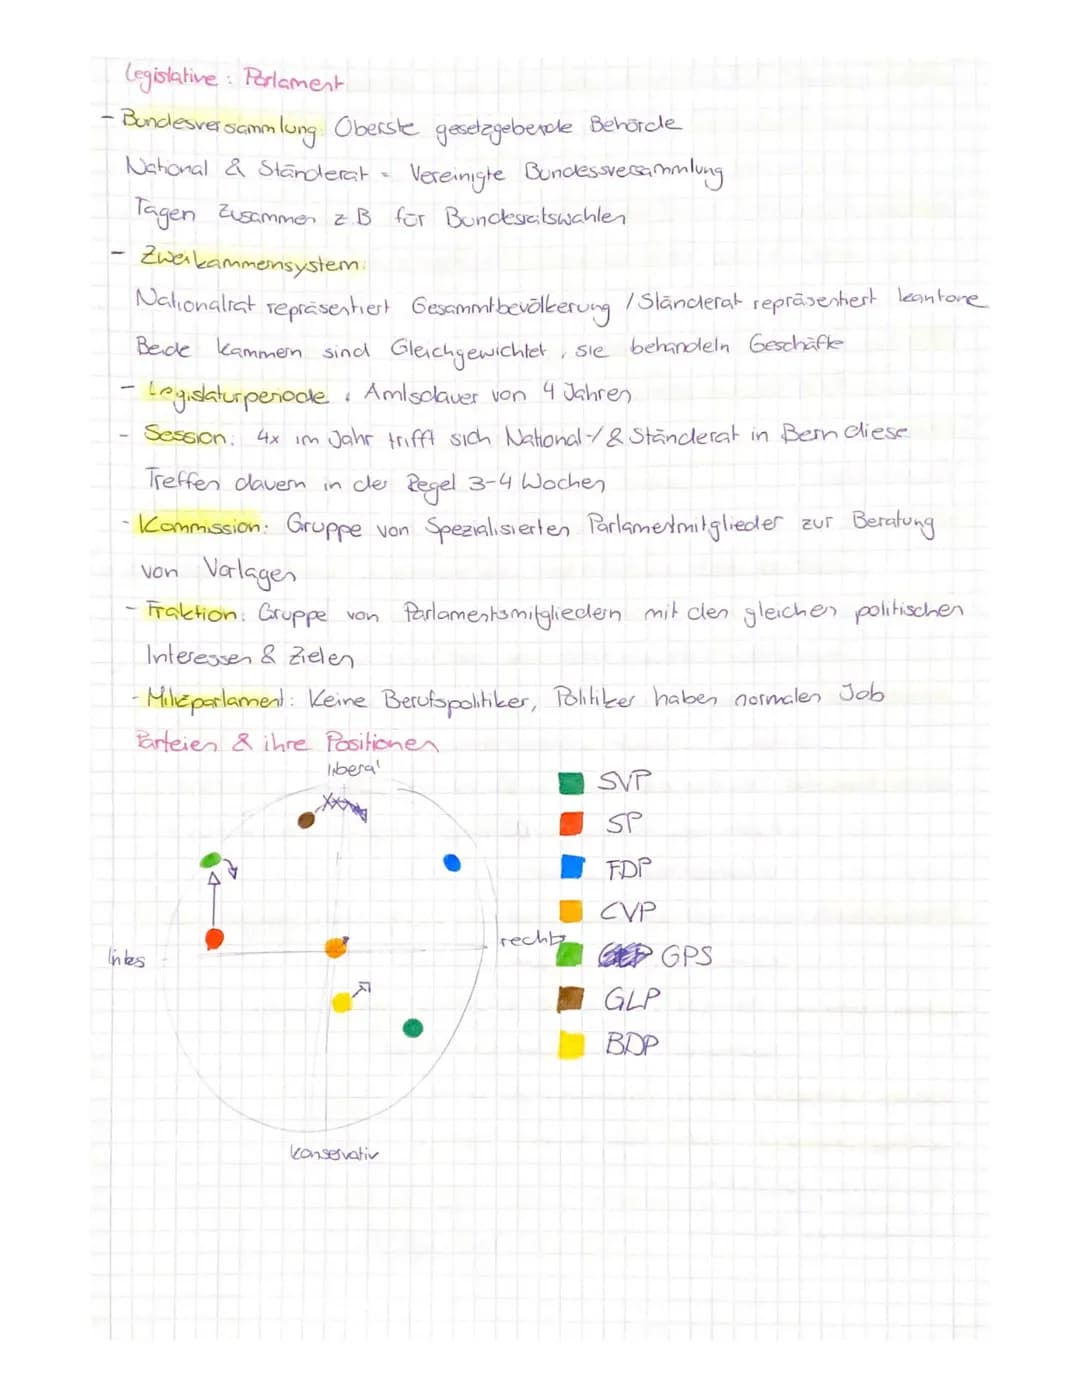 Legislative: Parlament
- Bundesversammlung: Oberste gesetzgebende Behörde
National & Ständerat = Vereinigte Bundessversammlung
Tagen zusammen z.B für Bundesratswahlen
- Zweikammernsystem:
Nationalrat repräsentiert Gesammtbevölkerung / Ständerat repräsentiert kantone
Beide kammern sind Gleichgewichtet, sie behandeln Geschäfte
- Legislaturperiode: Amtsdauer von 4 Jahren
- Session: 4x im Jahr trifft sich National-/& Ständerat in Bern diese
Treffen dauern in der Regel 3-4 Wochen
- Kommission: Gruppe von Spezialisierten Parlamentmitglieder zur Beratung
von Vorlagen
- Fraktion: Gruppe von Parlamentsmitgliedern mit den gleichen politischen
Interessen & Zielen
- Milizparlament: Keine Berufspolitiker, Politiker haben normalen Job
Parteien & ihre Positionen
liberal
SVP
SP
FDP
CVP
rechts
links
GPS
GLP
BDP
konservativ